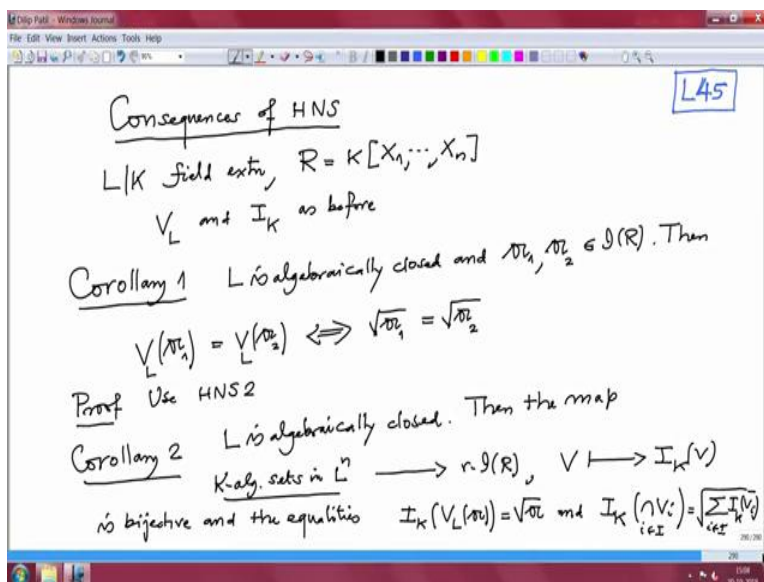 Dilip Patil - Windows Journal
File Edit View Insert Actions Tools Help
L45
Consequences of HNS
L|K field extn, R = K[X₁,⋯,Xₙ]
V_L and I_K as before
Corollary 1 L is algebraically closed and 𝔞₁, 𝔞₂ ∈ 𝓘(R). Then
V_L(𝔞₁) = V_L(𝔞₂) ⟺ √𝔞₁ = √𝔞₂
Proof Use HNS2
Corollary 2 L is algebraically closed. Then the map
K-alg. sets in Lⁿ ⟶ r-𝓘(R), V ⟼ I_K(V)
is bijective and the equalities I_K(V_L(𝔞)) = √𝔞 and I_K(⋂_{i∈I} V_i) = √(∑_{i∈I} I_K(V_i))
290/290
290
15:08